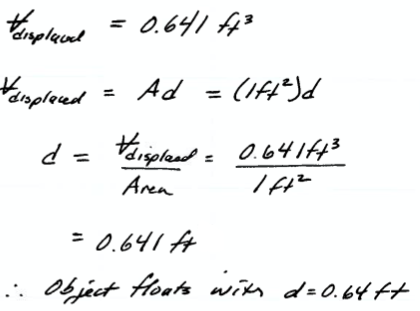 V̶displaced = 0.641 ft³
V̶displaced = Ad = (1ft²)d
d = V̶displaced / Area = 0.641ft³ / 1ft²
= 0.641 ft
∴ Object floats with d=0.64 ft